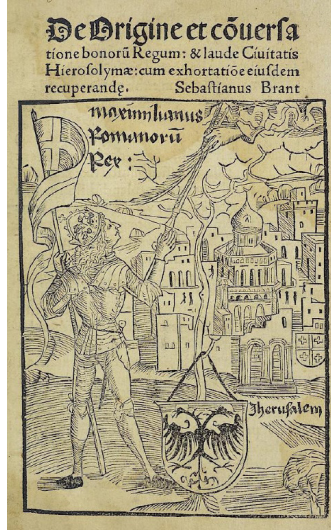 De Origine et cōuersa
tione bonorū Regum: & laude Ciuitatis
Hierosolymæ: cum exhortatiōe eiusdem
recuperandę. Sebastianus Brant
maximilianus
Romanorū
Rex:
Jherusalem